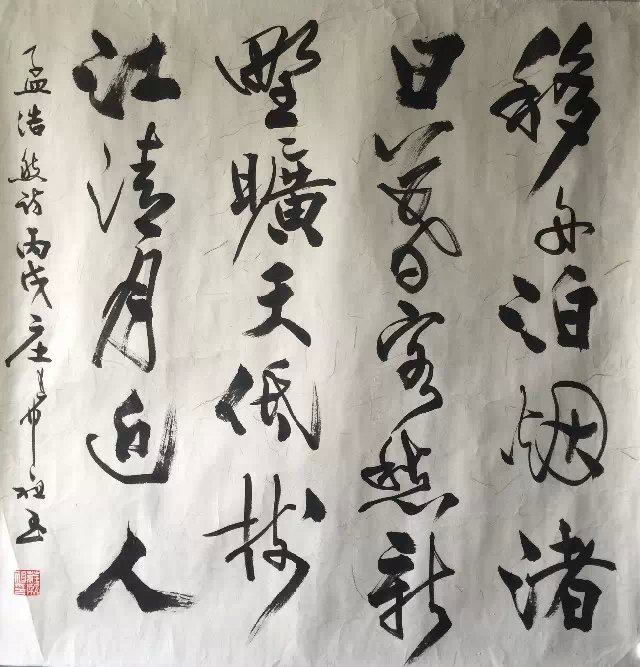 移舟泊烟渚
日暮客愁新
野曠天低树
江清月近人
孟浩然诗丙戌